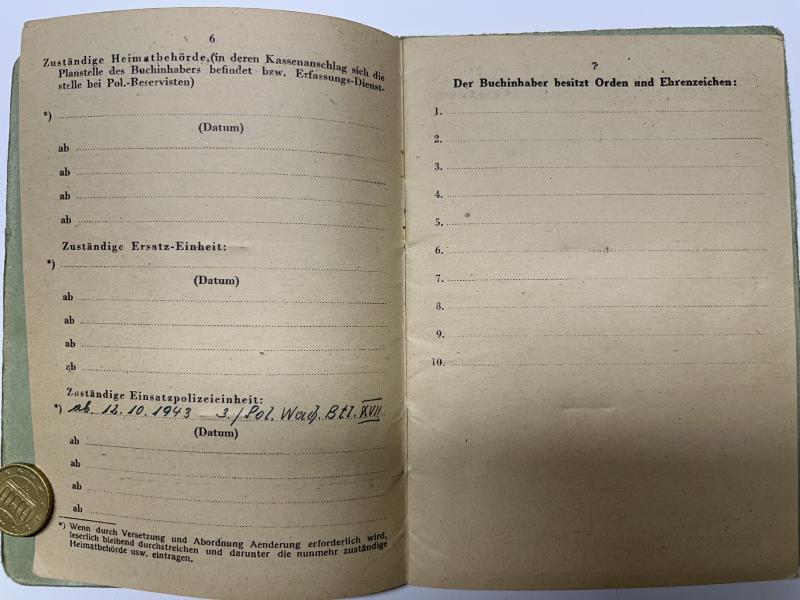 6
Zuständige Heimatbehörde (in deren Kassenanschlag sich die
Planstelle des Buchinhabers befindet bzw. Erfassungs-Dienst-
stelle bei Pol.-Reservisten)
*)
(Datum)
ab
ab
ab
ab
Zuständige Ersatz-Einheit:
*)
(Datum)
ab
ab
ab
ab
Zuständige Einsatzpolizeieinheit:
*) ab 12.10.1943 – 3./Pol. Wach. Btl. XVII
(Datum)
ab
ab
ab
ab
*) Wenn durch Versetzung und Abordnung Aenderung erforderlich wird,
leserlich bleibend durchstreichen und darunter die nunmehr zuständige
Heimatbehörde usw. eintragen.
7
Der Buchinhaber besitzt Orden und Ehrenzeichen:
1.
2.
3.
4.
5.
6.
7.
8.
9.
10.